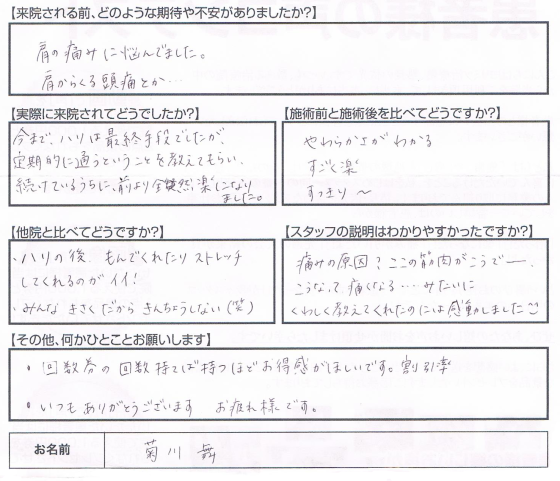 【来院される前、どのような期待や不安がありましたか?】
肩の痛みに悩んでました。
肩からくる頭痛とか…
【実際に来院されてどうでしたか?】
今まで、ハリは最終手段でしたが、
定期的に通うということを教えてもらい、
続けているうちに、前より全然楽になり
ました。
【施術前と施術後を比べてどうですか?】
やわらかさがわかる
すごく楽
すっきり〜
【他院と比べてどうですか?】
・ハリの後、もんでくれたり ストレッチ
してくれるのがイイ!
・みんな きさくだから きんちょうしない(笑)
【スタッフの説明はわかりやすかったですか?】
痛みの原因?ここの筋肉がこうでー、
こうなって痛くなる…みたいに
くわしく教えてくれたのには感動しました
【その他、何かひとことお願いします】
・回数券の回数持てば持つほどお得感がほしいです。割引率
・いつもありがとうございます お疲れ様です。
お名前
菊川 舞